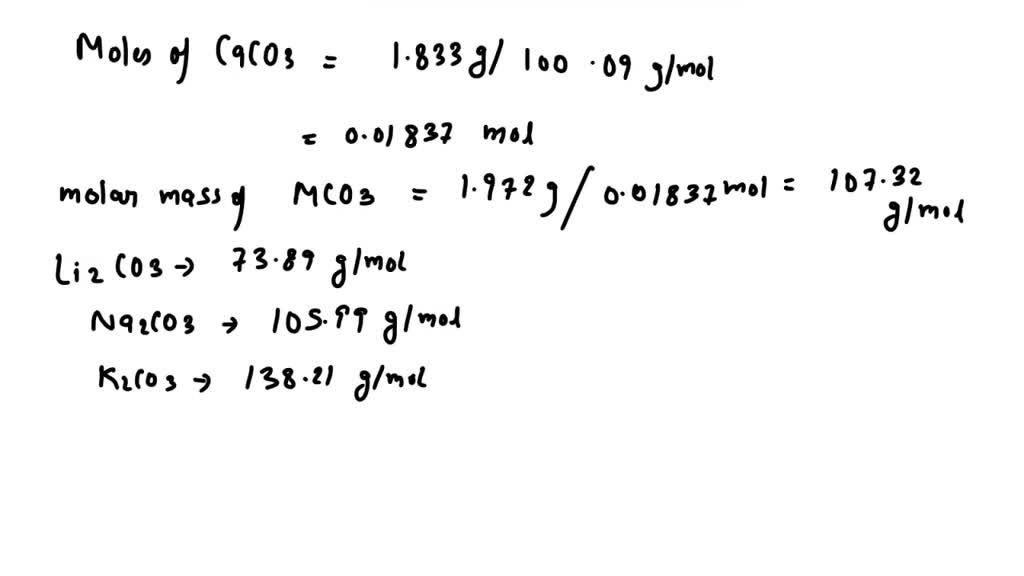 Moles of CaCO3 = 1.833 g/ 100.09 g/mol
= 0.01837 mol
molar mass of MCO3 = 1.972 g/ 0.01837 mol = 107.32 g/mol
Li2 CO3 → 73.89 g/mol
Na2CO3 → 105.99 g/mol
K2CO3 → 138.21 g/mol